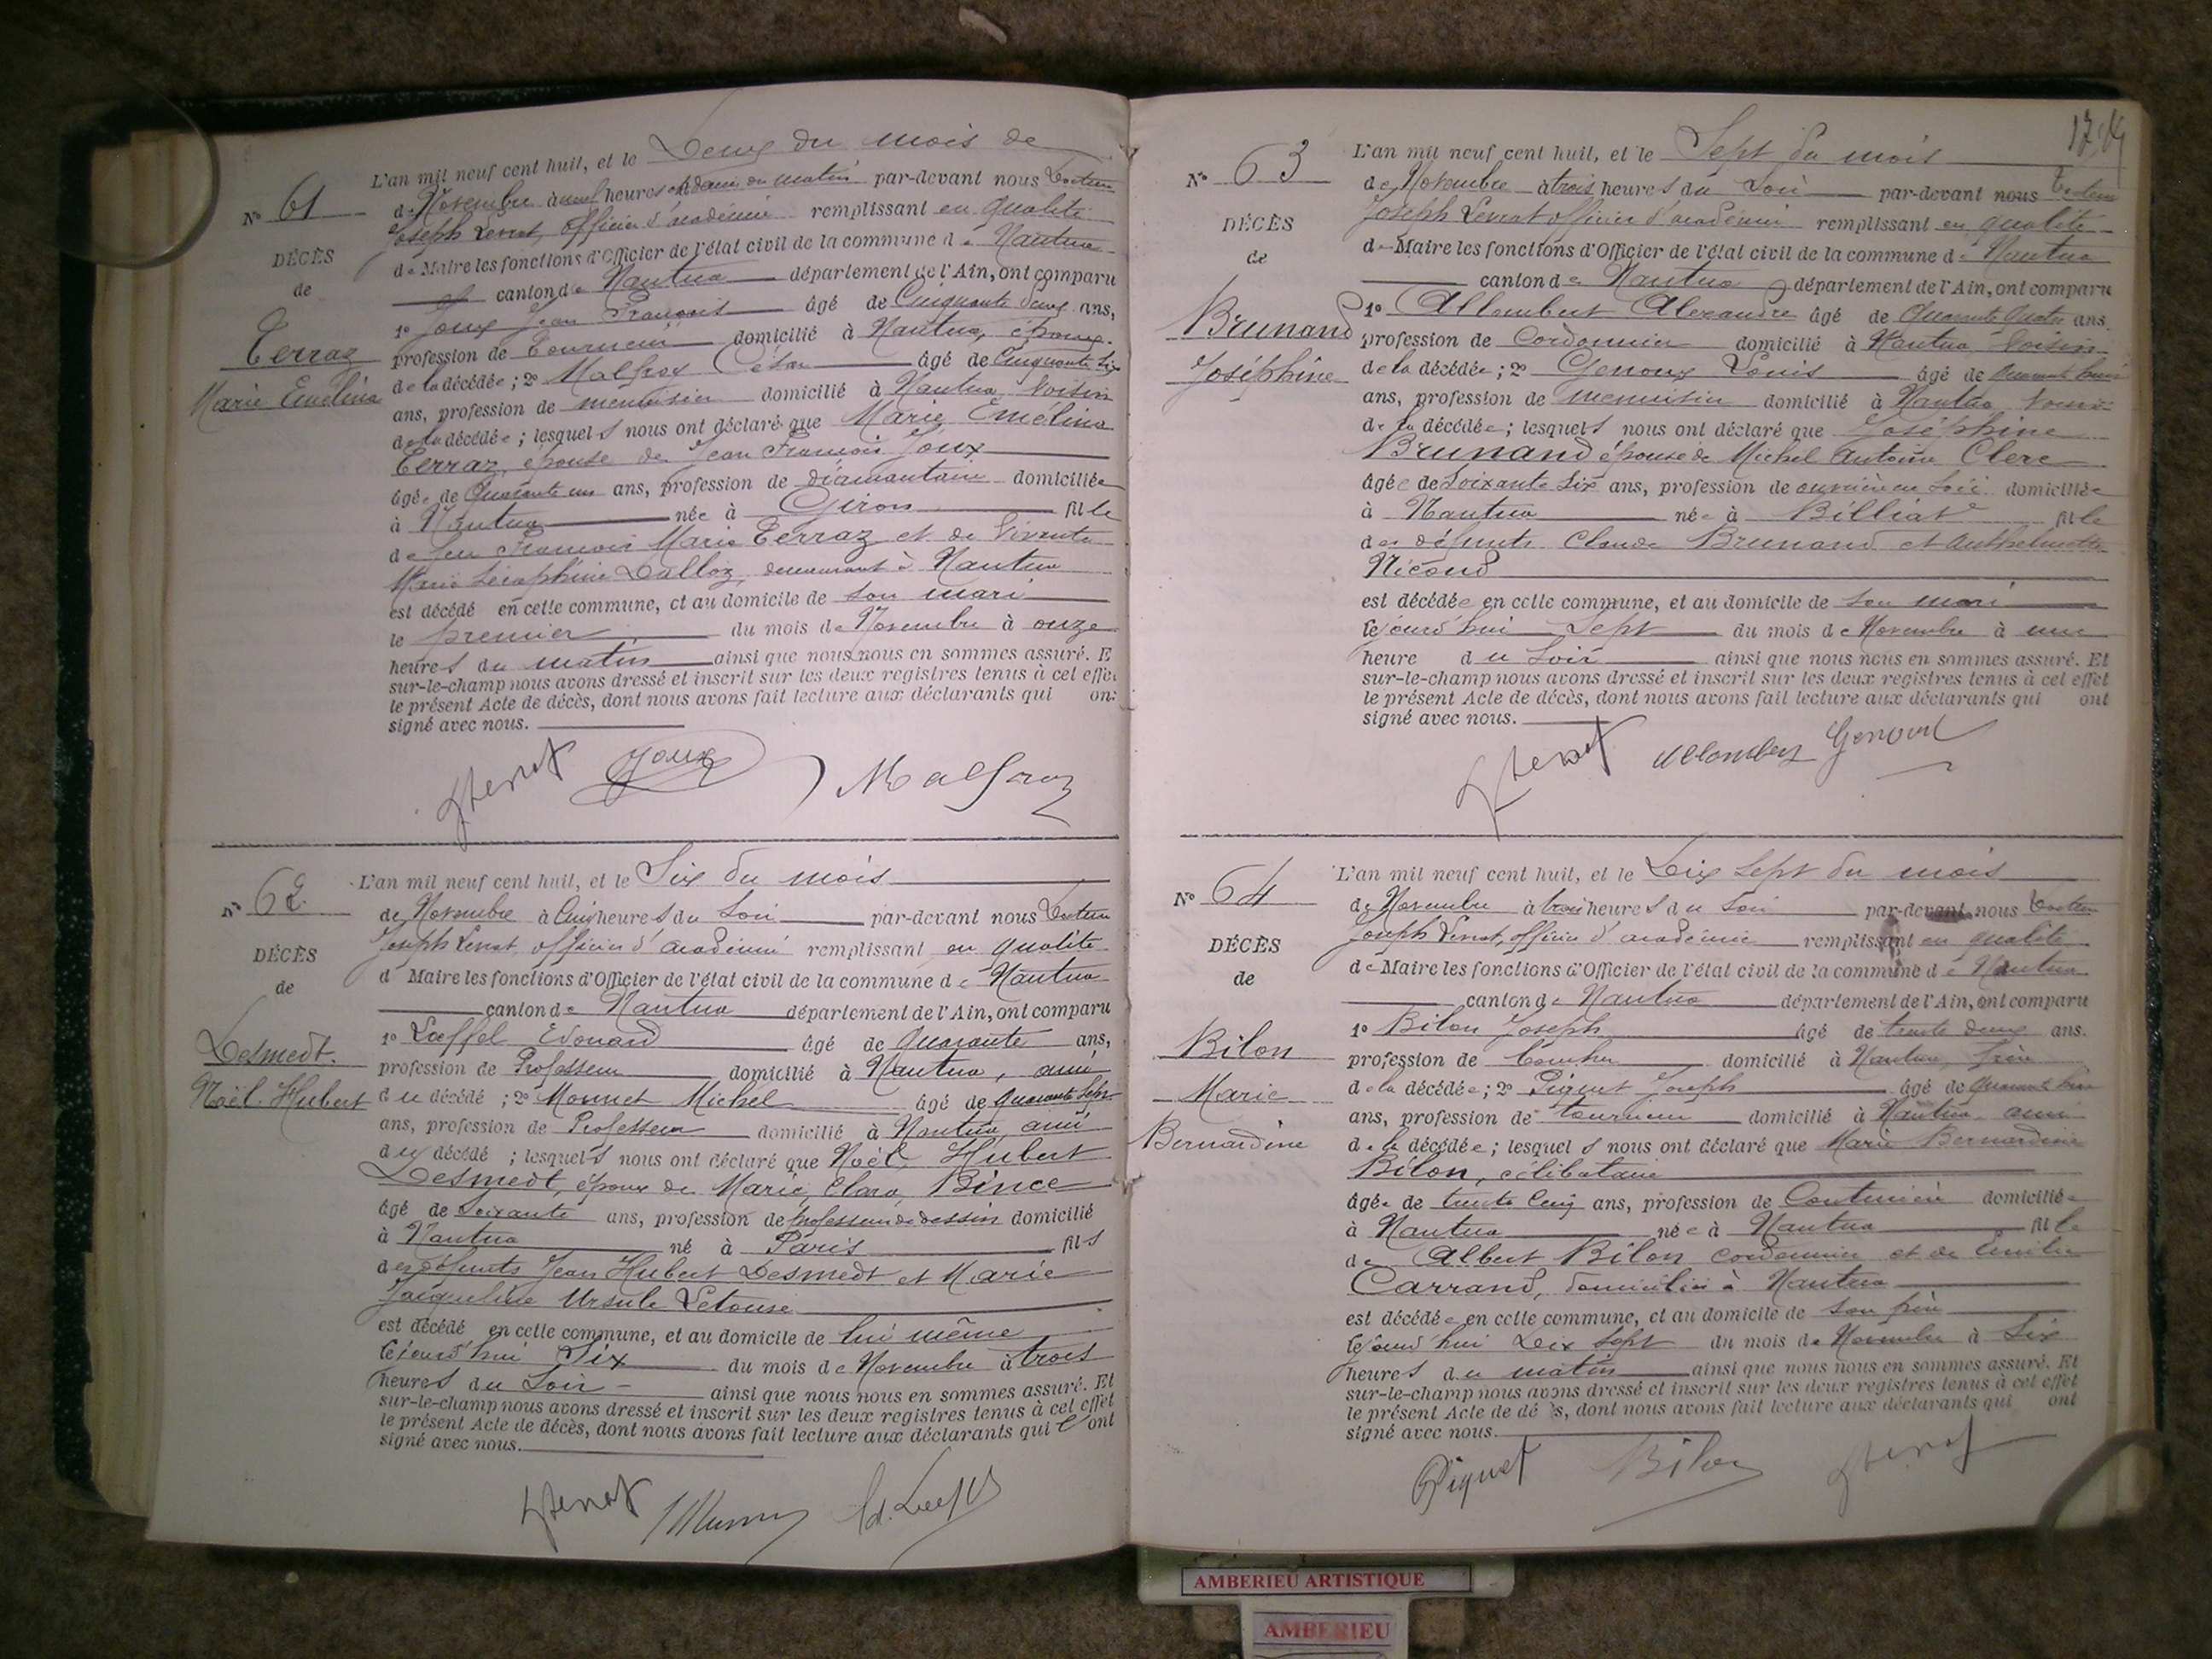 L'an mil neuf cent huit, et le Deux du mois de
Nº 61
de Novembre à neuf heures et demie du matin par-devant nous Docteur
Joseph Levrat, officier d'académie remplissant en qualité
DÉCÈS
de Maire les fonctions d'Officier de l'état civil de la commune de Nantua
de
canton de Nantua département de l'Ain, ont comparu
1º Joux Jean François âgé de Cinquante deux ans,
Terraz
profession de Tourneur domicilié à Nantua, époux
Marie Emelina
de la décédée ; 2º Malfroy César âgé de Cinquante Six
ans, profession de menuisier domicilié à Nantua Voisin
de la décédée ; lesquels nous ont déclaré que Marie Emélina
Terraz, épouse de Jean François Joux
âgée de Quarante un ans, profession de diamantaire domiciliée
à Nantua née à Giron fille
de feu François Marie Terraz et de vivante
Marie Séraphine Dalloz, demeurant à Nantua
est décédé en cette commune, et au domicile de son mari
le premier du mois de Novembre à onze
heures du matin ainsi que nous nous en sommes assuré. E
sur-le-champ nous avons dressé et inscrit sur les deux registres tenus à cet effe
le présent Acte de décès, dont nous avons fait lecture aux déclarants qui on
signé avec nous.
Joux
Malfroy
L'an mil neuf cent huit, et le Six du mois
Nº 62
de Novembre à Cinq heures du Soir par-devant nous Docteur
Joseph Levrat, officier d'académie remplissant en qualité
DÉCÈS
d Maire les fonctions d'Officier de l'état civil de la commune de Nantua
de
canton de Nantua département de l'Ain, ont comparu
1º Lœffel Edouard âgé de Quarante ans,
Desmedt.
profession de Professeur domicilié à Nantua, ami
Noël Hubert
du décédé ; 2º Monnet Michel âgé de Quarante Sept
ans, profession de Professeur domicilié à Nantua, ami
du décédé ; lesquels nous ont déclaré que Noël Hubert
Desmedt, époux de Marie Clara Bince
âgé de Soixante ans, profession de professeur de dessin domicilié
à Nantua né à Paris fils
des défunts Jean Hubert Desmedt et Marie
Jacqueline Ursule Letouse
est décédé en cette commune, et au domicile de lui même
Cejourd'hui Six du mois de Novembre à trois
heures du Soir ainsi que nous nous en sommes assuré. Et
sur-le-champ nous avons dressé et inscrit sur les deux registres tenus à cet effet
le présent Acte de décès, dont nous avons fait lecture aux déclarants qui l'ont
signé avec nous.
L'an mil neuf cent huit, et le Sept du mois
Nº 63
de Novembre à trois heures du Soir par-devant nous Docteur
Joseph Levrat officier d'académie remplissant en qualité
DÉCÈS
de Maire les fonctions d'Officier de l'état civil de la commune de Nantua
de
canton de Nantua département de l'Ain, ont comparu
1º Allombert Alexandre âgé de Quarante Quatre ans.
Brunand
profession de Cordonnier domicilié à Nantua Voisin
Joséphine
de la décédée ; 2º Genoux Louis âgé de Quarante
ans, profession de menuisier domicilié à Nantua Voisin
de la décédée ; lesquels nous ont déclaré que Joséphine
Brunand épouse de Michel Antoine Clerc
âgée de Soixante Six ans, profession de ouvrière en Soie domiciliée
à Nantua née à Billiat fille
des défunts Claude Brunand et Anthelmette
Nicoud
est décédée en cette commune, et au domicile de son mari
Cejourd'hui Sept du mois de Novembre à une
heure du Soir ainsi que nous nous en sommes assuré. Et
sur-le-champ nous avons dressé et inscrit sur les deux registres tenus à cet effet
le présent Acte de décès, dont nous avons fait lecture aux déclarants qui ont
signé avec nous.
Allombert Genoux
L'an mil neuf cent huit, et le Dix Sept du mois
Nº 64
de Novembre à trois heures du Soir par-devant nous Docteur
Joseph Levrat, officier d'académie remplissant en qualité
DÉCÈS
de Maire les fonctions d'Officier de l'état civil de la commune de Nantua
de
canton de Nantua département de l'Ain, ont comparu
1º Bilon Joseph âgé de trente deux ans.
Bilon
profession de boucher domicilié à Nantua, frère
Marie
de la décédée ; 2º Piquet Joseph âgé de Quarante
ans, profession de tourneur domicilié à Nantua ami
Bernardine
de la décédée ; lesquels nous ont déclaré que Marie Bernardine
Bilon, célibataire
âgée de trente Cinq ans, profession de Couturière domiciliée
à Nantua née à Nantua fille
de Albert Bilon cordonnier et de Emilie
Carrand, domiciliés à Nantua
est décédée en cette commune, et au domicile de son père
Cejourd'hui Dix Sept du mois de Novembre à Six
heures du matin ainsi que nous nous en sommes assuré. Et
sur-le-champ nous avons dressé et inscrit sur les deux registres tenus à cet effet
le présent Acte de dé s, dont nous avons fait lecture aux déclarants qui ont
signé avec nous.
Piquet Bilon
AMBERIEU ARTISTIQUE
AMBERIEU